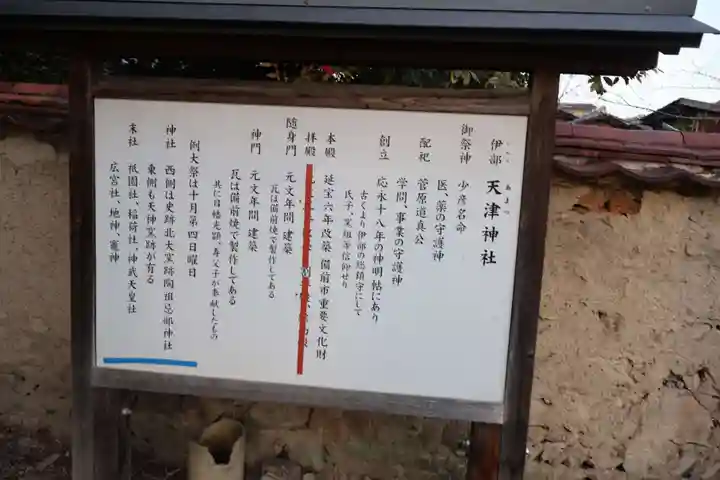 いんべ あまつ
伊部 天津神社
御祭神 少彦名命
医、薬の守護神
配祀 菅原道真公
学問、事業の守護神
創立 応永十八年の神明帖にあり
古くより伊部の総鎮守にして
氏子、窯組等信仰せり
本殿 延宝六年改築 備前市重要文化財
拝殿
随身門 元文年間 建築
瓦は備前焼で製作してある
神門 元文年間 建築
瓦は備前焼で製作してある
例大祭は十月第四日曜日
神社 西側は史跡北大窯跡陶祖忌部神社
東側も天神窯跡が有る
末社 祇園社、稲荷社、神武天皇社
広宮社、地神、竈神